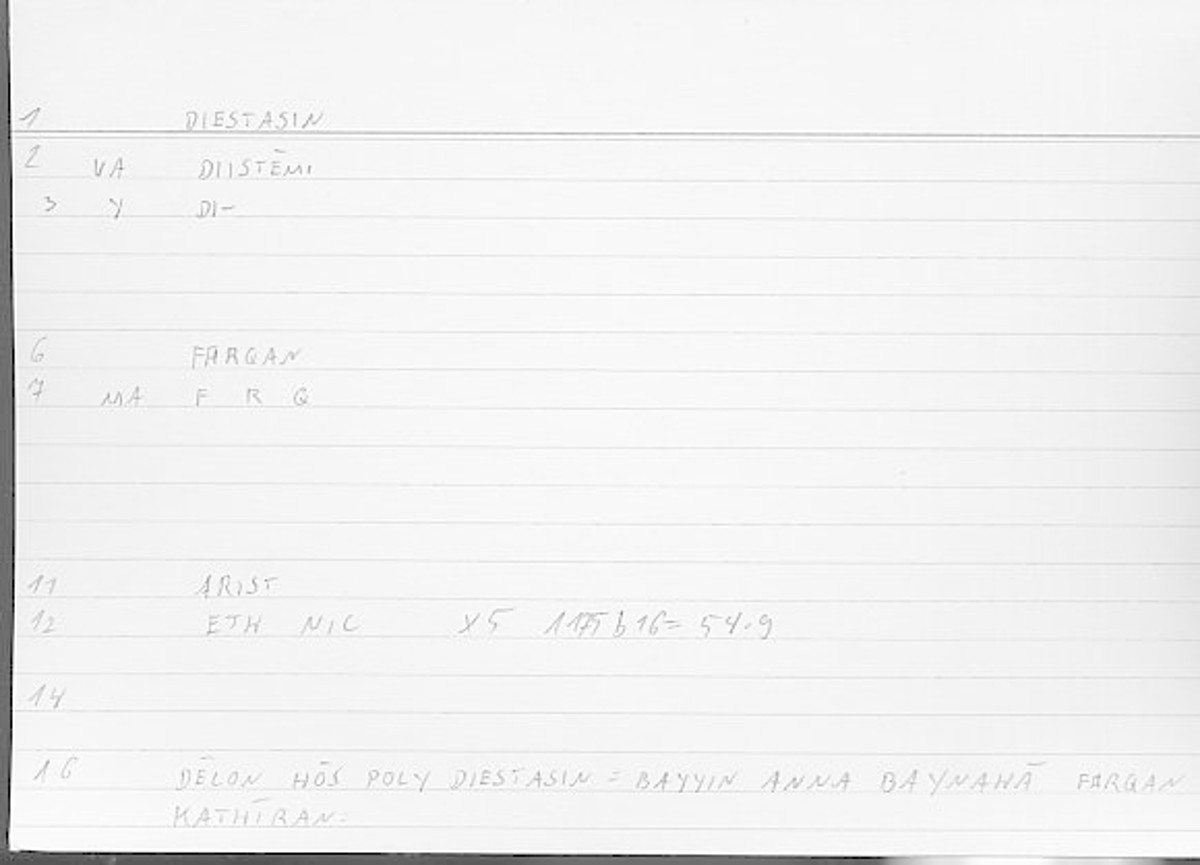 1 DIESTASIN
2 VA DIISTĒMI
3 Y DI-
6 FARQAN
7 MA F R Q
11 ARIST
12 ETH NIC X5 1175 b 16 = 54.9
14
16 DĒLON HŌS POLY DIESTASIN = BAYYIN ANNA BAYNAHĀ FARQAN
KATHĪRAN.